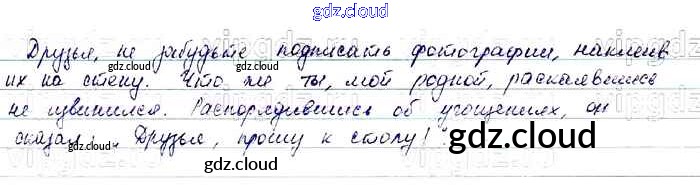 gdz.cloud
Друзья, не забудьте подписать фотографии, наклеив
gdz.cloud gdz.cloud
их на стену. Что же ты, мой родной, раскаявшись
не извинился. Распорядившись об угощениях, он
gdz.cloud gdz.cloud
сказал: „Друзья, прошу к столу!"
gdz.cloud gdz.cloud